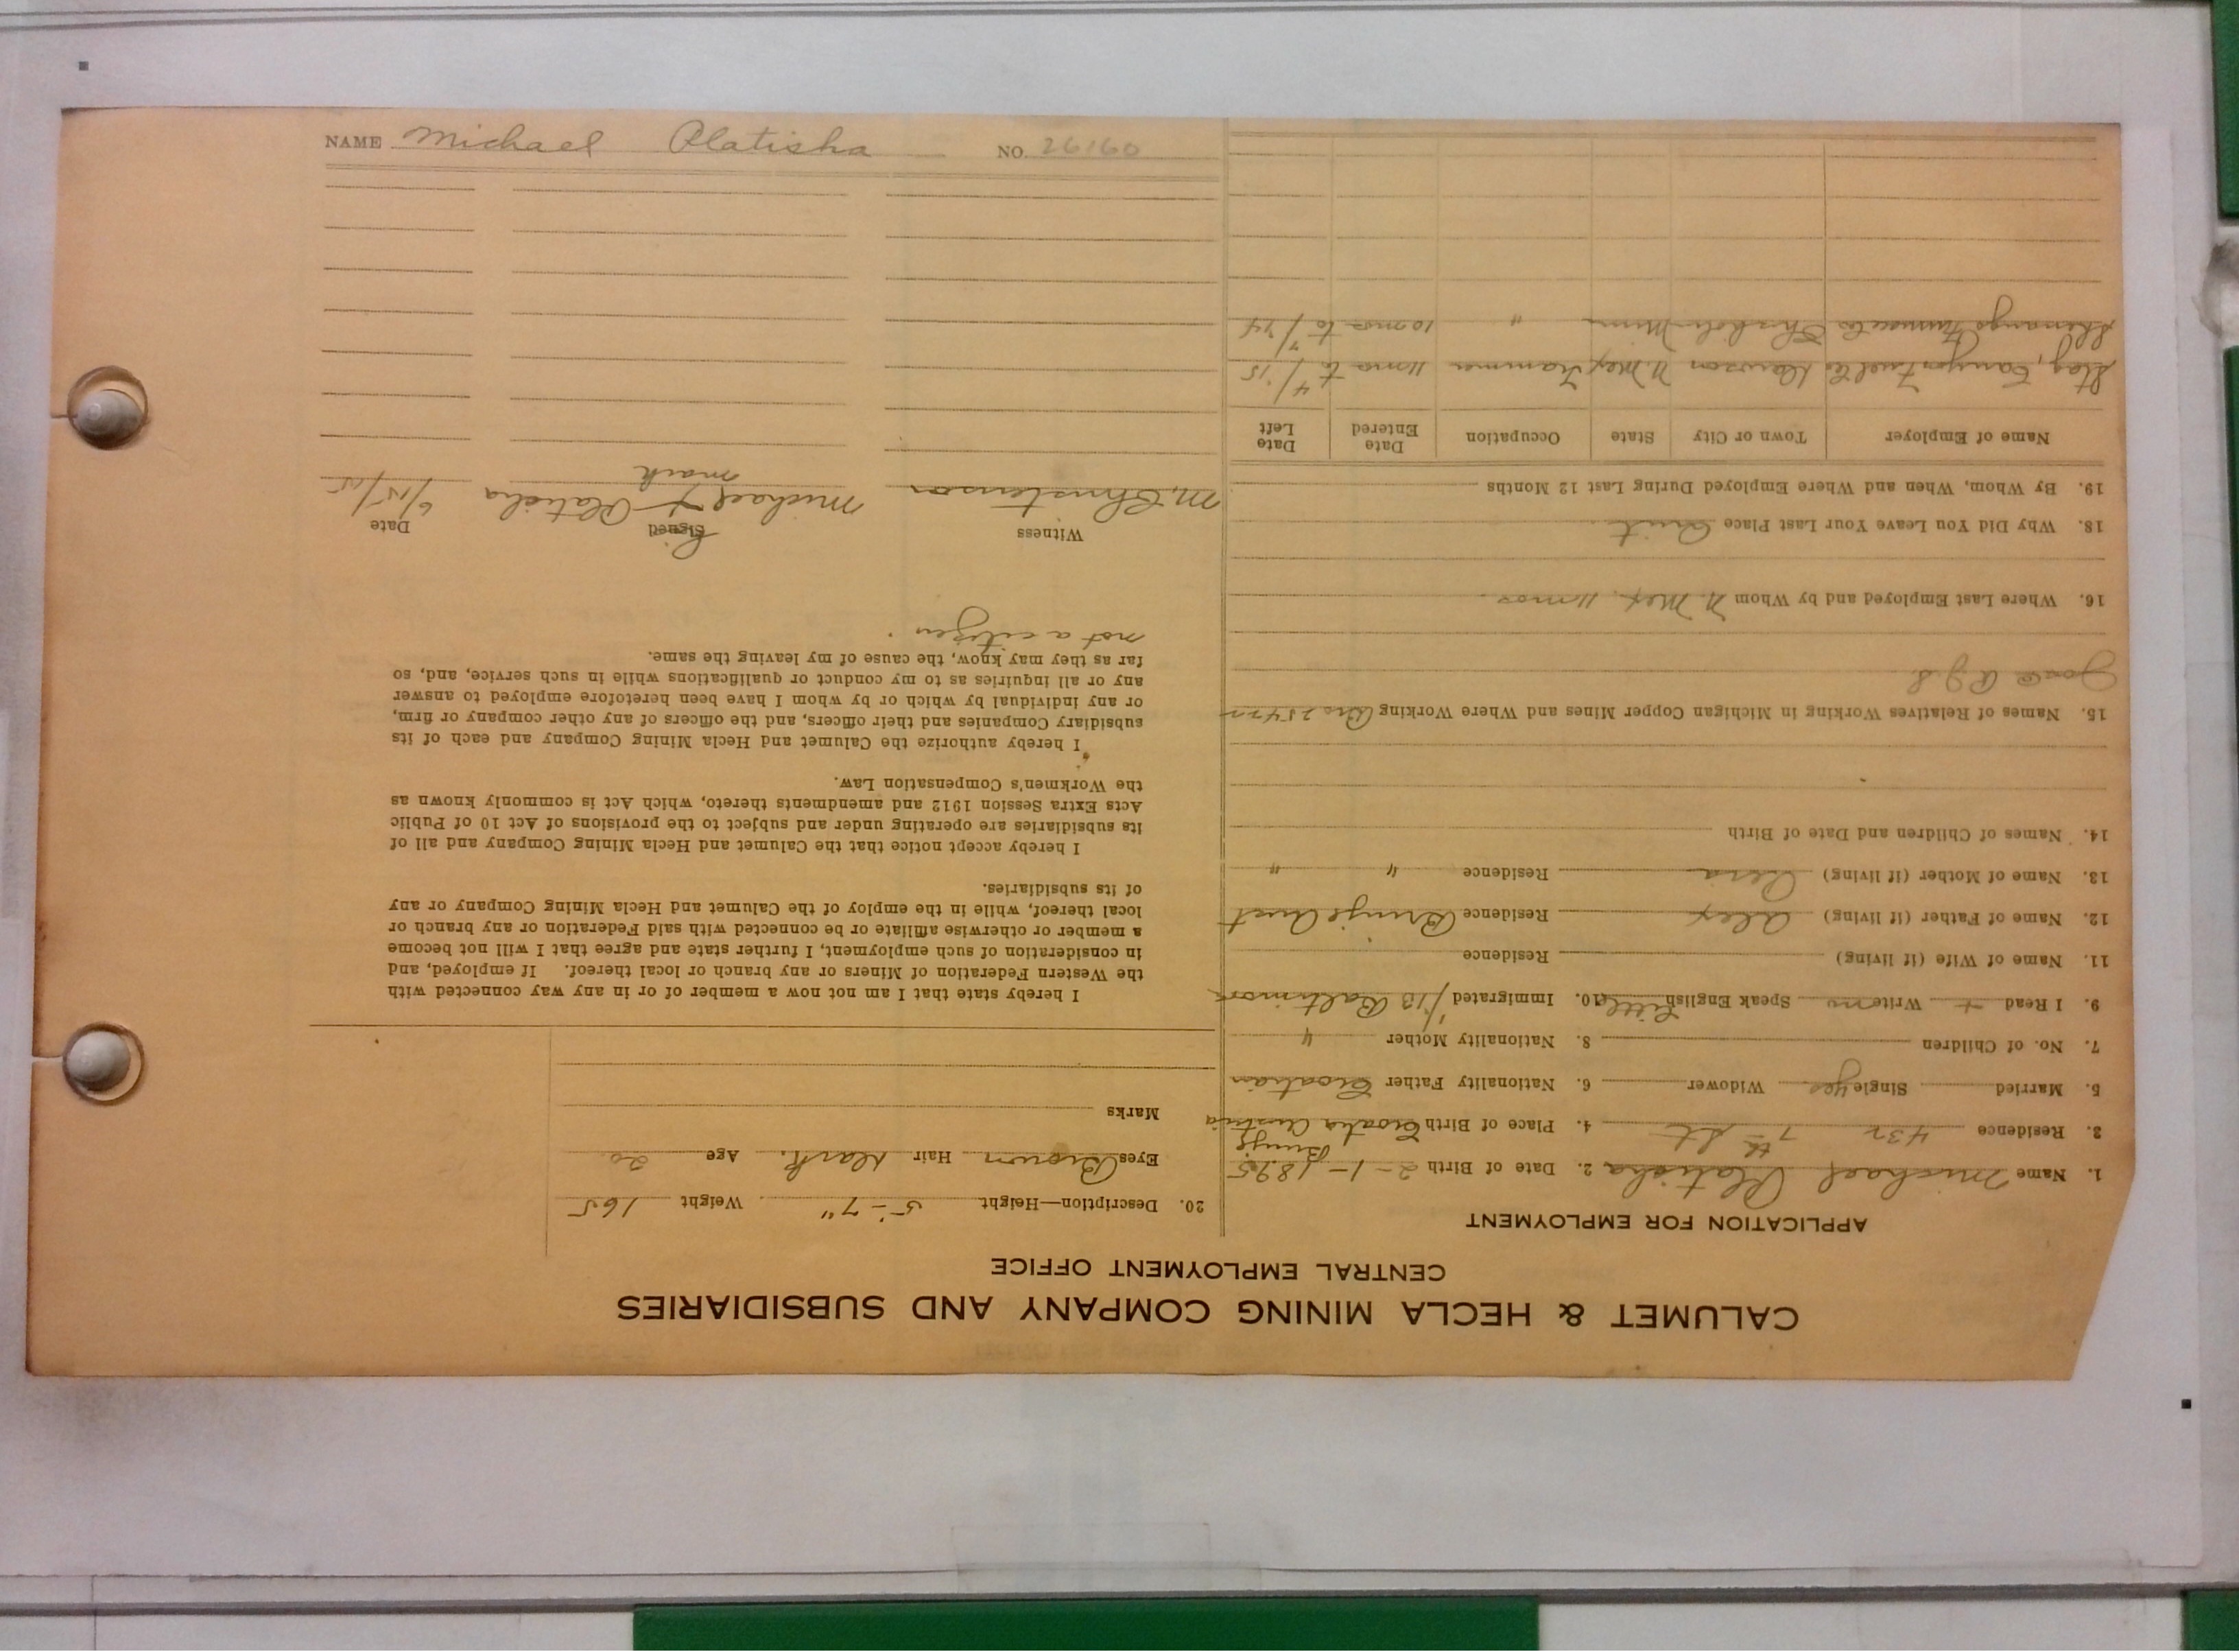 NAME Michael Platisha NO. 26160
CALUMET & HECLA MINING COMPANY AND SUBSIDIARIES
CENTRAL EMPLOYMENT OFFICE
APPLICATION FOR EMPLOYMENT
1. Name Michael Platisha 2. Date of Birth 2-1-1895
3. Residence 432 7th St 4. Place of Birth Croatia Austria
5. Married Single yes Widower 6. Nationality Father Croatian
7. No. of Children 8. Nationality Mother "
9. I Read + Write no Speak English Little 10. Immigrated 1/13 Baltimore
11. Name of Wife (if living) Residence
12. Name of Father (if living) Alex Residence Aust
13. Name of Mother (if living) Residence " "
14. Names of Children and Date of Birth
15. Names of Relatives Working in Michigan Copper Mines and Where Working Bro
16. Where Last Employed and by Whom N. Mex. 11 mos.
18. Why Did You Leave Your Last Place Quit
19. By Whom, When and Where Employed During Last 12 Months
Name of Employer Town or City State Occupation Date Entered Date Left
Stag, Canyon Fuel Co Dawson N. Mex Trammer 11 mos to 4/15
Shenango Furnace Co Minn " 10 mos to /14
20. Description—Height 5'-7" Weight 165
Eyes Brown Hair Dark. Age 20
Marks
I hereby state that I am not now a member of or in any way connected with
the Western Federation of Miners or any branch or local thereof. If employed, and
in consideration of such employment, I further state and agree that I will not become
a member or otherwise affiliate or be connected with said Federation or any branch or
local thereof, while in the employ of the Calumet and Hecla Mining Company or any
of its subsidiaries.
I hereby accept notice that the Calumet and Hecla Mining Company and all of
its subsidiaries are operating under and subject to the provisions of Act 10 of Public
Acts Extra Session 1912 and amendments thereto, which Act is commonly known as
the Workmen's Compensation Law.
I hereby authorize the Calumet and Hecla Mining Company and each of its
subsidiary Companies and their officers, and the officers of any other company or firm,
or any individual by which or by whom I have been heretofore employed to answer
any or all inquiries as to my conduct or qualifications while in such service, and, so
far as they may know, the cause of my leaving the same.
not a citizen.
Witness Signed Date
M. Christenson Michael X Platisha 6/15/15
mark